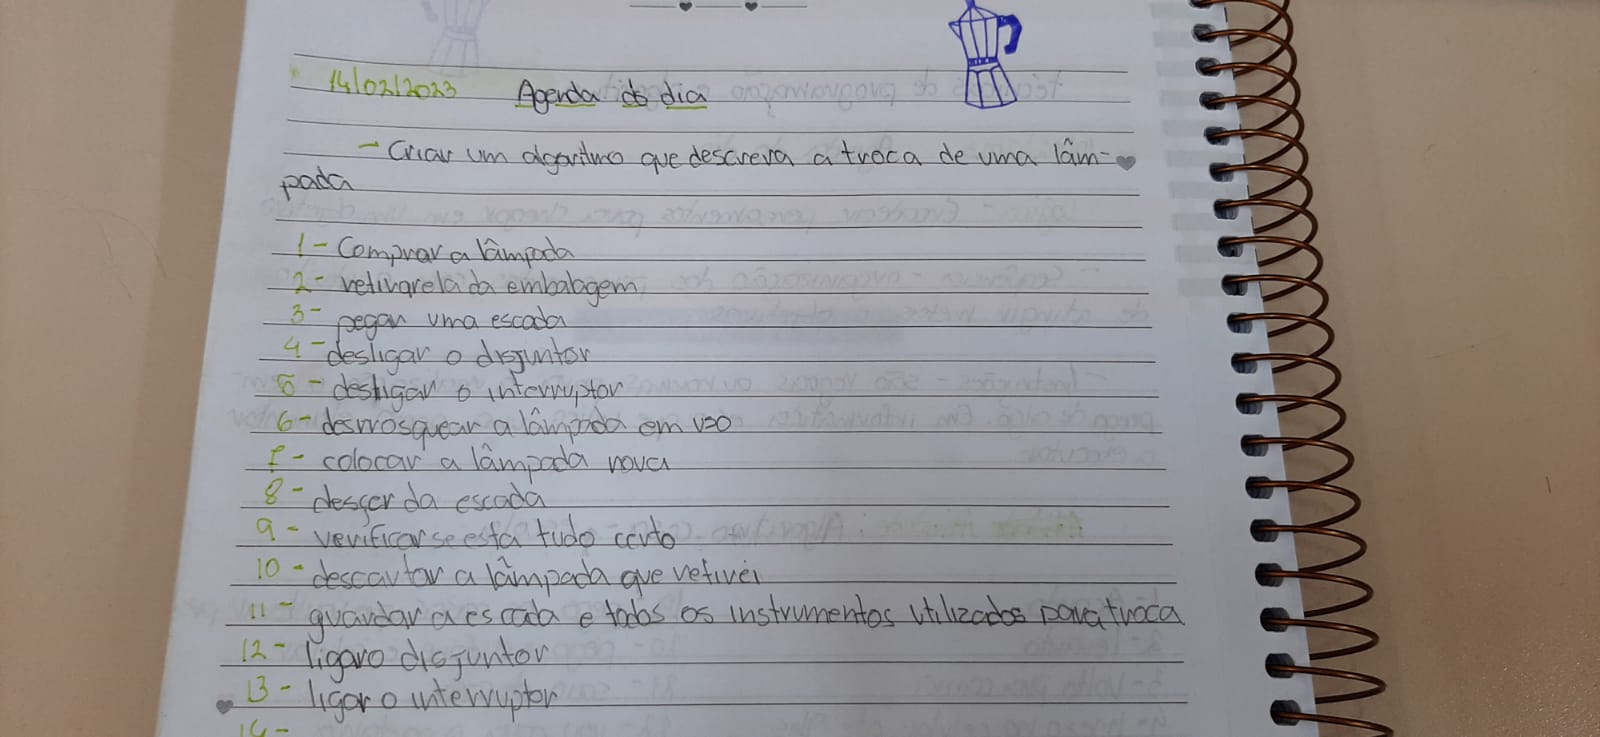 14/02/2023 Agenda do dia
- Criar um algoritmo que descreva a troca de uma lâm-
pada
1- Comprar a lâmpada
2- retirar ela da embalagem
3- pegar uma escada
4- desligar o disjuntor
5- desligar o interruptor
6- desrosquear a lâmpada em uso
7- colocar a lâmpada nova
8- desçer da escada
9- verificar se está tudo certo
10- descartar a lâmpada que retirei
11- guardar a escada e todos os instrumentos utilizados para troca
12- ligar o disjuntor
13- ligar o interruptor
14-